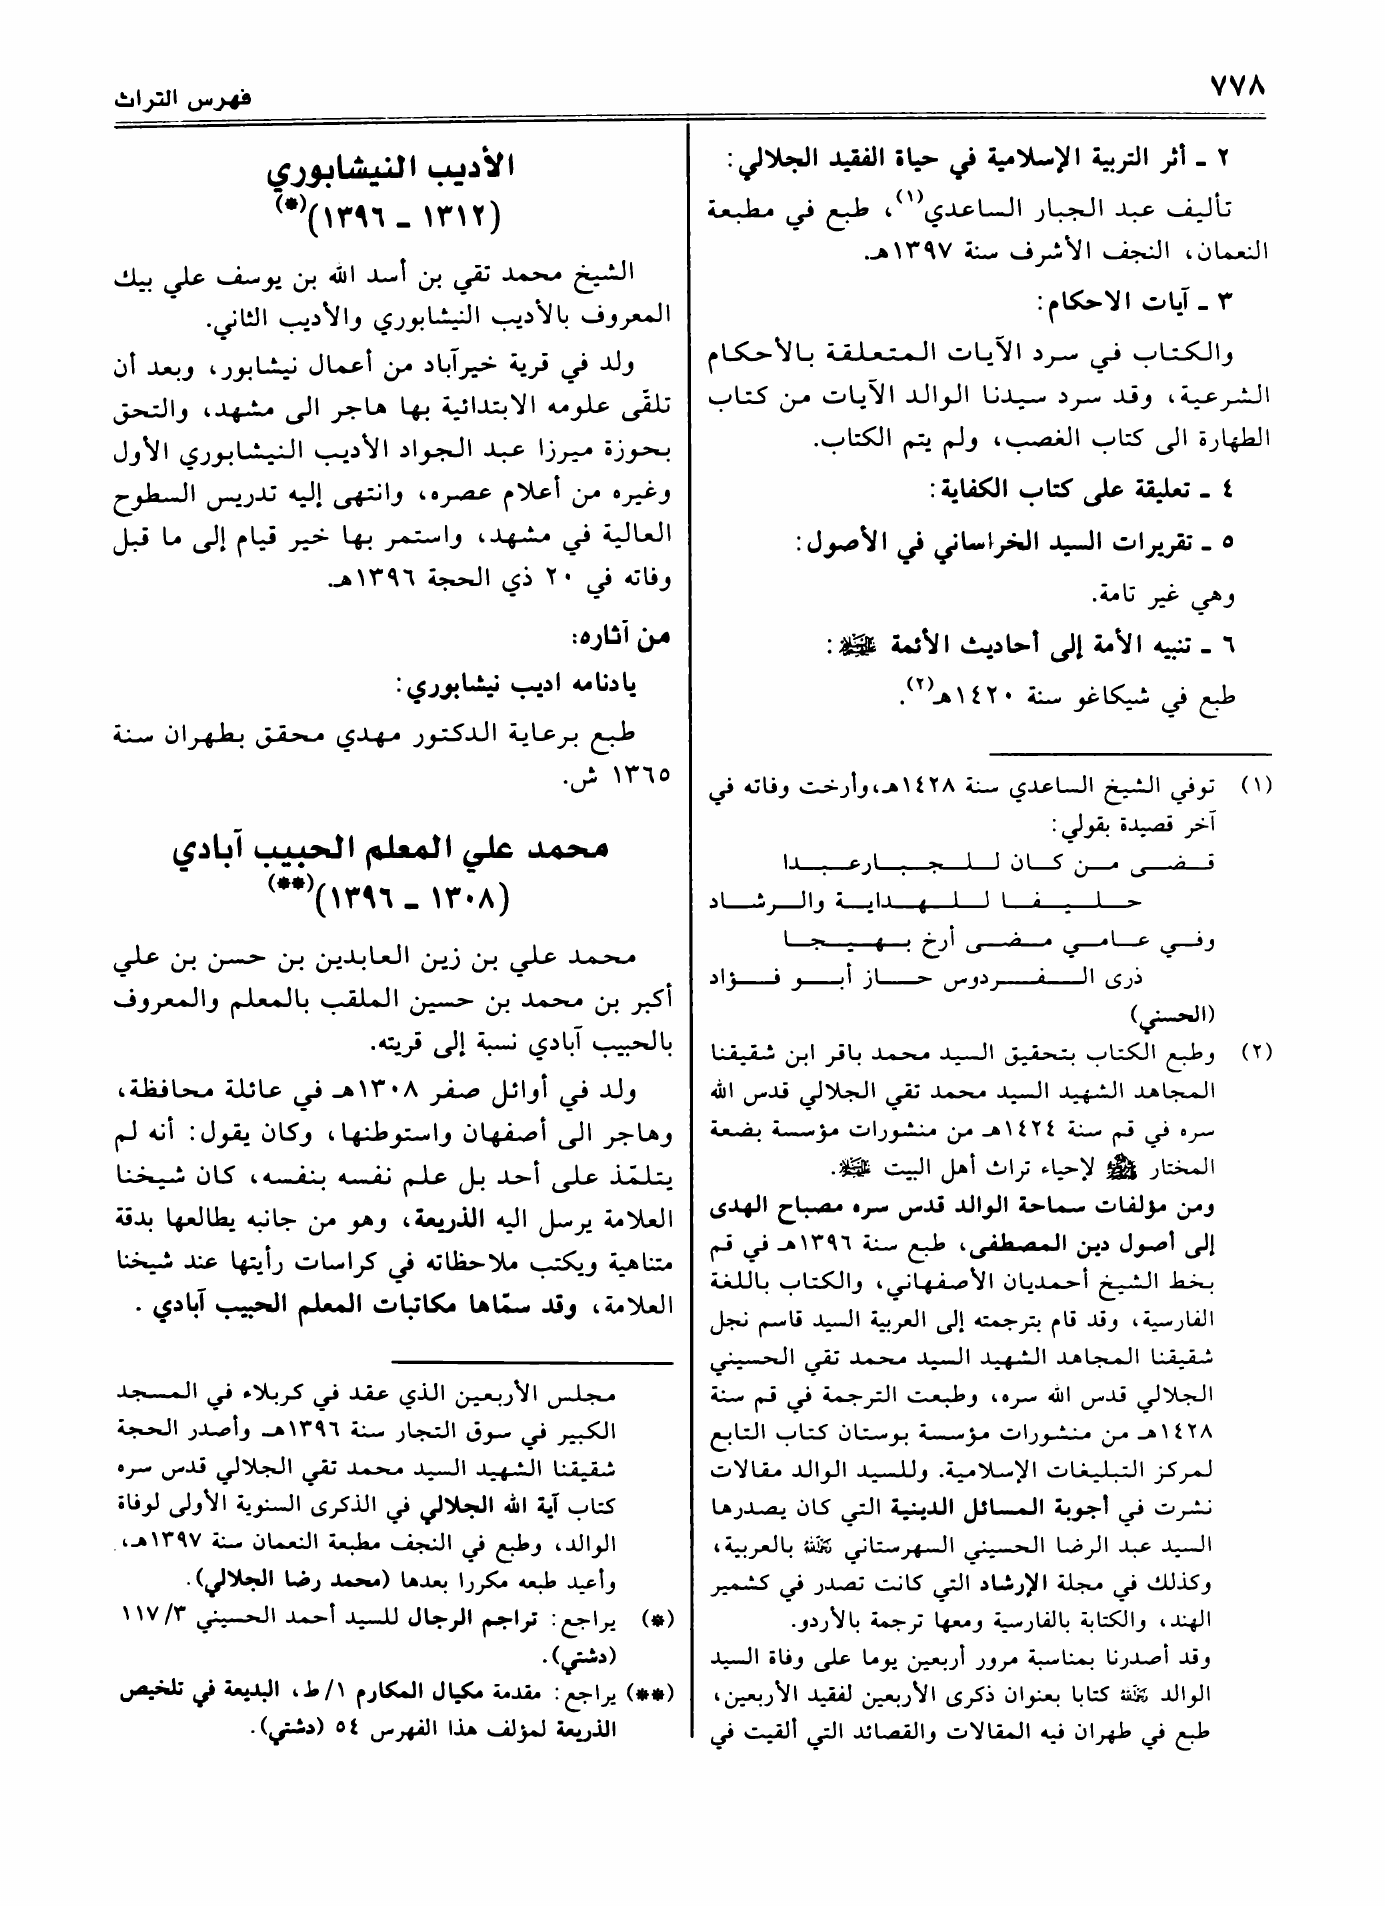 ٧٧٨
فهرس التراث
٢ ـ أثر التربية الإسلامية في حياة الفقيد الجلالي:
تأليف عبد الجبار الساعدي(١)، طبع في مطبعة
النعمان، النجف الأشرف سنة ١٣٩٧هـ.
٣ ـ آيات الاحكام:
والكتاب في سرد الآيات المتعلقة بالأحكام
الشرعية، وقد سرد سيدنا الوالد الآيات من كتاب
الطهارة الى كتاب الغصب، ولم يتم الكتاب.
٤ ـ تعليقة على كتاب الكفاية:
٥ ـ تقريرات السيد الخراساني في الأصول:
وهي غير تامة.
٦ ـ تنبيه الأمة إلى أحاديث الأئمة :
طبع في شيكاغو سنة ١٤٢٠هـ(٢).
(١) توفي الشيخ الساعدي سنة ١٤٢٨هـ،وأرخت وفاته في
آخر قصيدة بقولي:
قضى من كان للجبارعبدا
حليفا للهداية والرشاد
وفي عامي مضى أرخ بهيجا
ذرى الفردوس حاز أبو فؤاد
(الحسني)
(٢) وطبع الكتاب بتحقيق السيد محمد باقر ابن شقيقنا
المجاهد الشهيد السيد محمد تقي الجلالي قدس الله
سره في قم سنة ١٤٢٤هـ من منشورات مؤسسة بضعة
المختار ﷺ لإحياء تراث أهل البيت .
ومن مؤلفات سماحة الوالد قدس سره مصباح الهدى
إلى أصول دين المصطفى، طبع سنة ١٣٩٦هـ في قم
بخط الشيخ أحمديان الأصفهاني، والكتاب باللغة
الفارسية، وقد قام بترجمته إلى العربية السيد قاسم نجل
شقيقنا المجاهد الشهيد السيد محمد تقي الحسيني
الجلالي قدس الله سره، وطبعت الترجمة في قم سنة
١٤٢٨هـ من منشورات مؤسسة بوستان كتاب التابع
لمركز التبليغات الإسلامية. وللسيد الوالد مقالات
نشرت في أجوبة المسائل الدينية التي كان يصدرها
السيد عبد الرضا الحسيني السهرستاني  بالعربية،
وكذلك في مجلة الإرشاد التي كانت تصدر في كشمير
الهند، والكتابة بالفارسية ومعها ترجمة بالأردو.
وقد أصدرنا بمناسبة مرور أربعين يوما على وفاة السيد
الوالد  كتابا بعنوان ذكرى الأربعين لفقيد الأربعين،
طبع في طهران فيه المقالات والقصائد التي ألقيت في
الأديب النيشابوري
(١٣١٢ ـ ١٣٩٦)(*)
الشيخ محمد تقي بن أسد الله بن يوسف علي بيك
المعروف بالأديب النيشابوري والأديب الثاني.
ولد في قرية خيرآباد من أعمال نيشابور، وبعد أن
تلقّى علومه الابتدائية بها هاجر الى مشهد، والتحق
بحوزة ميرزا عبد الجواد الأديب النيشابوري الأول
وغيره من أعلام عصره، وانتهى إليه تدريس السطوح
العالية في مشهد، واستمر بها خير قيام إلى ما قبل
وفاته في ٢٠ ذي الحجة ١٣٩٦هـ.
من آثاره:
يادنامه اديب نيشابوري:
طبع برعاية الدكتور مهدي محقق بطهران سنة
١٣٦٥ ش.
محمد علي المعلم الحبيب آبادي
(١٣٠٨ ـ ١٣٩٦)(**)
محمد علي بن زين العابدين بن حسن بن علي
أكبر بن محمد بن حسين الملقب بالمعلم والمعروف
بالحبيب آبادي نسبة إلى قريته.
ولد في أوائل صفر ١٣٠٨هـ في عائلة محافظة،
وهاجر الى أصفهان واستوطنها، وكان يقول: أنه لم
يتلمّذ على أحد بل علم نفسه بنفسه، كان شيخنا
العلامة يرسل اليه الذريعة، وهو من جانبه يطالعها بدقة
متناهية ويكتب ملاحظاته في كراسات رأيتها عند شيخنا
العلامة، وقد سمّاها مكاتبات المعلم الحبيب آبادي .
مجلس الأربعين الذي عقد في كربلاء في المسجد
الكبير في سوق التجار سنة ١٣٩٦هـ وأصدر الحجة
شقيقنا الشهيد السيد محمد تقي الجلالي قدس سره
كتاب آية الله الجلالي في الذكرى السنوية الأولى لوفاة
الوالد، وطبع في النجف مطبعة النعمان سنة ١٣٩٧هـ،
وأعيد طبعه مكررا بعدها (محمد رضا الجلالي).
(*) يراجع: تراجم الرجال للسيد أحمد الحسيني ٣/ ١١٧
(دشتي).
(**) يراجع: مقدمة مكيال المكارم ١/ ط، البديعة في تلخيص
الذريعة لمؤلف هذا الفهرس ٥٤ (دشتي).